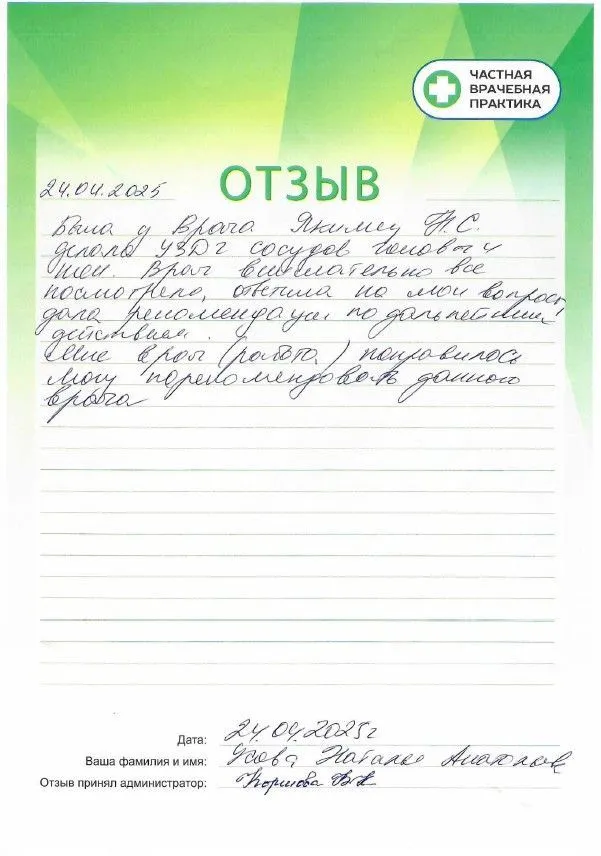 ЧАСТНАЯ
ВРАЧЕБНАЯ
ПРАКТИКА
ОТЗЫВ
24.04.2025
Была у врача Якимец Н.С.
делала УЗДГ сосудов головы и
шеи. Врач внимательно все
посмотрела, ответила на мои вопросы
дала рекомендации по дальнейшим
действиям.
Мне врач (работа) понравилось
могу порекомендовать данного
врача
Дата: 24.04.2025г
Ваша фамилия и имя: Наталья Анатольевна
Отзыв принял администратор: